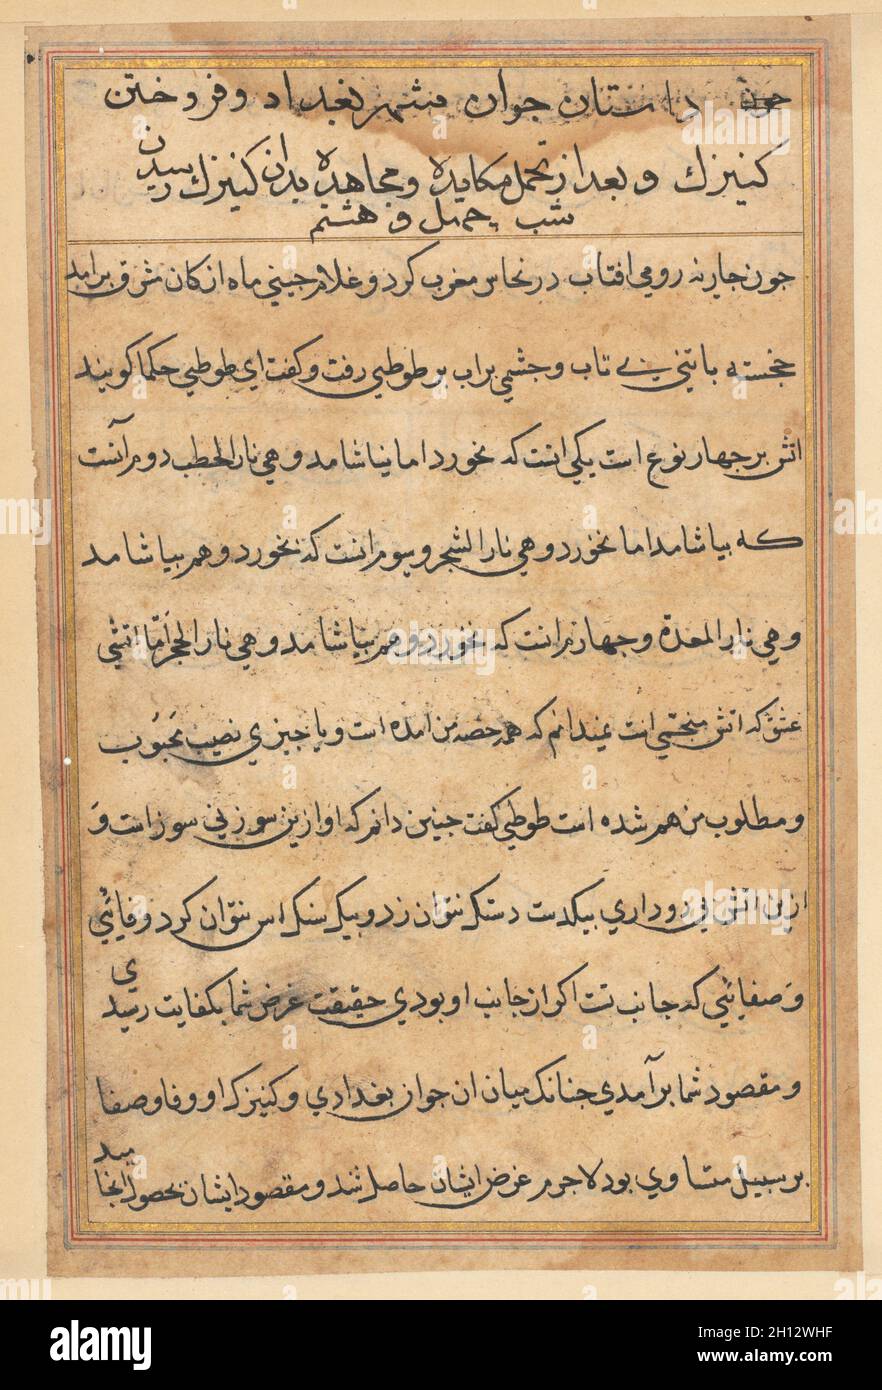 داستان جوان شهر بغداد و فروختن
کنیزك و بعد از تحمل مکایده و مجاهده بدان کنیزك رسیدن
شب چهل و هشتم
جون جاریه رومی افتاب در نخاس مغرب کرد و غلام جینی ماه از کان مشرق برامد
خجسته با تنی بی تاب و جشمی براب بر طوطی رفت و کفت ای طوطی حکما کویند
اتش بر جهار نوع است یکی انست که بخورد اما نیاشامد و هی نار الحطب دوم آنست
که بیاشامد اما نخورد و هی نار الشجر و سوم انست که بخورد و هم بیاشامد
و هی نار المعدة و جهارم انست که نخورد و هم نیاشامد و هی نار الحجر اَمّا اتشی
عشق که اتش منجنیقی است نمیدانم که همه حصه من امده است و یا جیزی نصیب مَحبُوب
و مطلوب من هم شده است طوطی کفت جنین دانم که او ازین سوز بی سوز است وَ
ازین اتش بی دود اری بیکدست دستک نتوان زد و بیک سنک اس نتوان کرد وفائی
وَ صفائی که جانب تست اکر از جانب او بودی حقیقت غرض شما بکفایت رسیدی
و مقصود شما برآمدی جنانک میان ان جوان بغدادی و کنیزک او وفا و صفا
بر سبیل متساوی بود لاجرم غرض ایشان حاصل شد و مقصود ایشان بحصول انجامید
alamy
Image ID: 2H12WHF
www.alamy.com